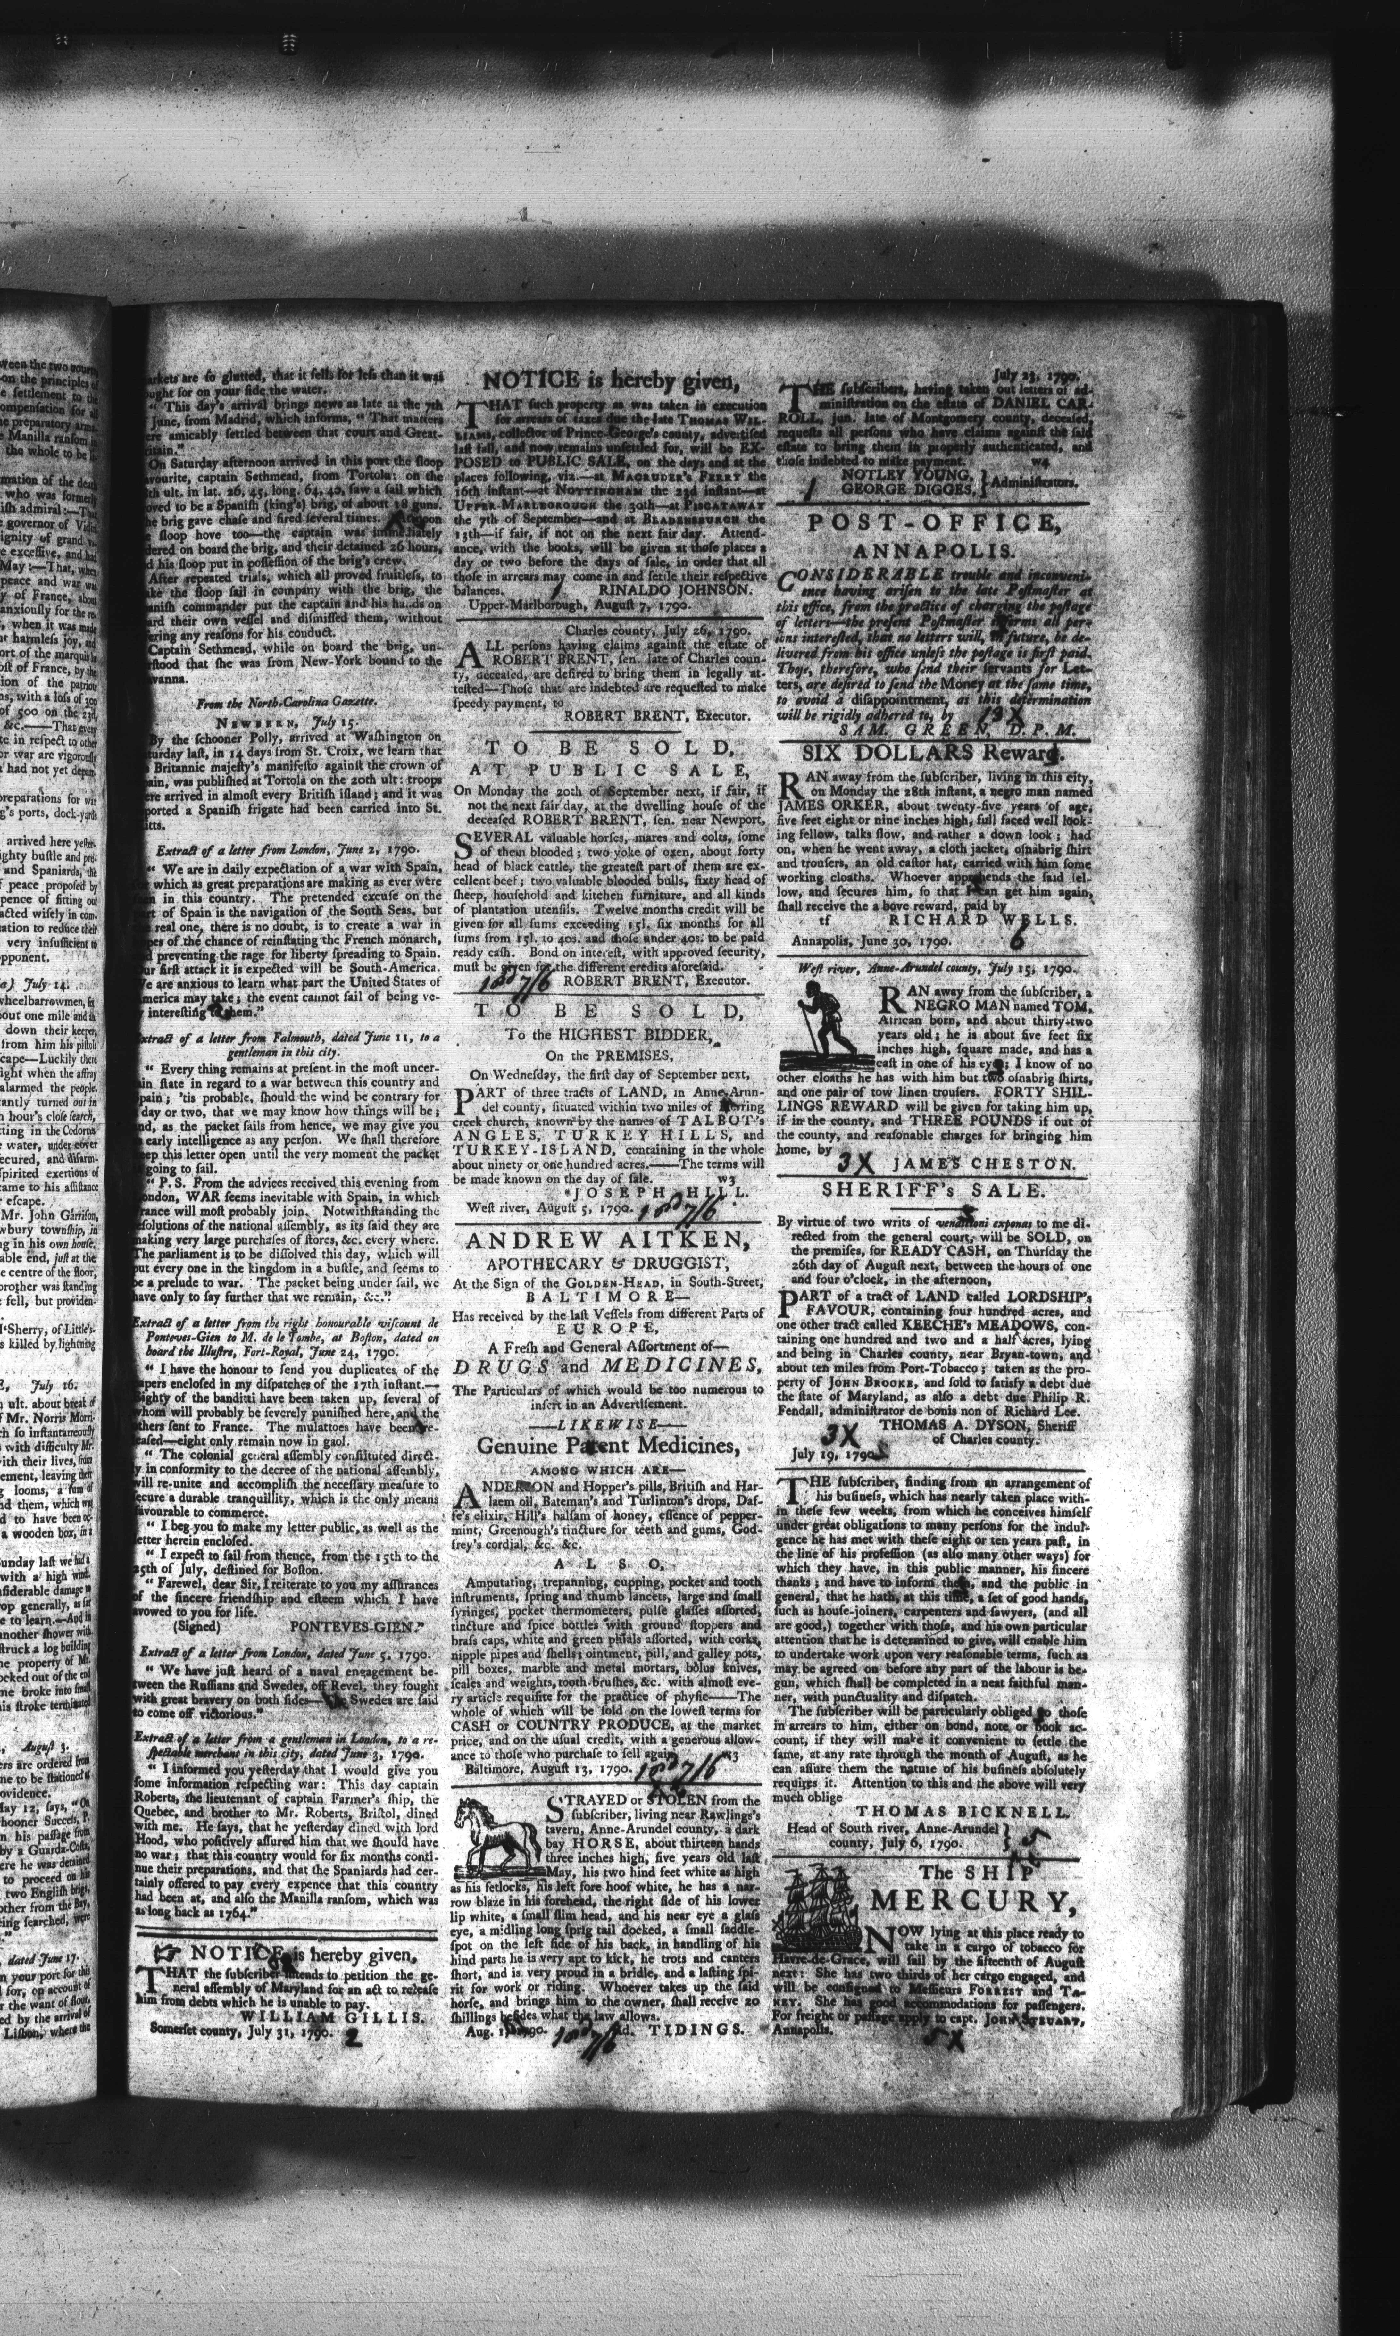 ween the two
on the principles of
settlement to the
ompensation for all
preparatory arma
Manilla ransom in
the whole to be
mation of the death
who was formerly
ish admiral:—That
governor of
ignity of grand
excessive, and had
May:—That, when
peace and war was
y of France, about
anxiously for the
, when it was made
harmless joy, and
ort of the marquis
of France, by the
ion of the patriots
s, with a loss of 300
of 500 on the 23d,
&c.——That every
in respect to other
r war are vigorously
had not yet
preparations for war
g's ports, dock-yards
arrived here
ighty bustle and
and Spaniards, the
f peace proposed by
pence of fitting out
acted wisely in com
ation to reduce their
very insufficient to
opponent.
July 14.
wheelbarrowmen,
out one mile and
down their keeper,
from him his pistols
cape—Luckily there
ight when the affray
alarmed the people.
tantly turned out in
hour's close search,
ting in the Codorus
water, under cover
ecured, and disarm-
spirited exertions of
came to his assistance
escape.
Mr. John Garrison,
wbury township, in
ng in his own house,
able end, just at the
e centre of the floor,
brother was standing
fell, but providen-
Sherry, of Little's-
s killed by lightning
July 16.
ult. about break of
Mr. Norris
so instantaneously
with difficulty Mr.
with their lives, from
ement, leaving their
looms, a sum of
nd them, which was
d to have been
a wooden box, in a
unday last we had a
with a high wind.
nsiderable damage
rop generally, as far
e to learn.—And in
nother shower with
truck a log building
he property of Mr.
ocked out of the end
me broke into small
his stroke terminated
August 3.
ers are ordered from
me to be stationed
ovidence.
May 12, says, "On
hooner Success,
n his passage from
by a Guarda-Costa,
ere he was detained
to proceed on his
two English brigs,
other from the Bay,
ing searched, were
dated June 17.
n your port for this
for, op account of
r the want of flour,
ed by the arrival of
Lisbon, where the
arkets are so glutted, that it sells for less than it was
ought for on your side the water.
" This day's arrival brings news as late as the 7th
June, from Madrid, which informs, " That matters
ere amicably settled between that court and Great-
ritain."
On Saturday afternoon arrived in this port the sloop
avourite, captain Sethmead, from Tortola: on the
th ult. in lat. 26, 45, long. 64, 40, saw a sail which
oved to be a Spanish (king's) brig, of about 18 guns.
he brig gave chase and fired several times.
e sloop hove too—the captain was immediately
dered on board the brig, and their detained 26 hours,
d his sloop put in possession of the brig's crew.
After repeated trials, which all proved fruitless, to
ake the sloop sail in company with the brig, the
anish commander put the captain and his hands on
ard their own vessel and dismissed them, without
ering any reasons for his conduct.
Captain Sethmead, while on board the brig, un-
rstood that she was from New-York bound to the
avanna.
From the North-Carolina Gazette.
NEWBERN, July 15.
By the schooner Polly, arrived at Washington on
turday last, in 14 days from St. Croix, we learn that
Britannic majesty's manifesto against the crown of
pain, was published at Tortola on the 20th ult: troops
ere arrived in almost every British island; and it was
ported a Spanish frigate had been carried into St.
itts.
Extract of a letter from London, June 2, 1790.
" We are in daily expectation of a war with Spain,
which as great preparations are making as ever were
in this country. The pretended excuse on the
rt of Spain is the navigation of the South Seas, but
real one, there is no doubt, is to create a war in
pes of the chance of reinstating the French monarch,
d preventing the rage for liberty spreading to Spain.
ur first attack it is expected will be South-America.
e are anxious to learn what part the United States of
merica may take; the event cannot fail of being ve-
interesting to them."
xtract of a letter from Falmouth, dated June 11, to a
gentleman in this city.
" Every thing remains at present in the most uncer-
ain state in regard to a war between this country and
pain; 'tis probable, should the wind be contrary for
day or two, that we may know how things will be;
nd, as the packet sails from hence, we may give you
early intelligence as any person. We shall therefore
eep this letter open until the very moment the packet
going to sail.
" P. S. From the advices received this evening from
ondon, WAR seems inevitable with Spain, in which
rance will most probably join. Notwithstanding the
esolutions of the national assembly, as its said they are
making very large purchases of stores, &c. every where.
The parliament is to be dissolved this day, which will
put every one in the kingdom in a bustle, and seems to
be a prelude to war. The packet being under sail, we
have only to say further that we remain, &c."
Extract of a letter from the right honourable viscount de
Ponteves-Gien to M. de le Tombe, at Boston, dated on
board the Illustre, Fort-Royal, June 24, 1790.
" I have the honour to send you duplicates of the
papers enclosed in my dispatches of the 17th instant.—
Eighty of the banditti have been taken up, several of
whom will probably be severely punished here, and the
others sent to France. The mulattoes have been re-
eased—eight only remain now in gaol.
" The colonial general assembly constituted direct-
y in conformity to the decree of the national assembly,
will re-unite and accomplish the necessary measure to
ecure a durable tranquillity, which is the only means
favourable to commerce.
" I beg you to make my letter public, as well as the
letter herein enclosed.
" I expect to sail from thence, from the 15th to the
25th of July, destined for Boston.
" Farewel, dear Sir, I reiterate to you my assurances
of the sincere friendship and esteem which I have
avowed to you for life.
(Signed) PONTEVES-GIEN."
Extract of a letter from London, dated June 5, 1790.
" We have just heard of a naval engagement be-
tween the Russians and Swedes, off Revel, they fought
with great bravery on both sides—the Swedes are said
to come off victorious."
Extract of a letter from a gentleman in London, to a re-
spectable merchant in this city, dated June 3, 1790.
" I informed you yesterday that I would give you
some information respecting war: This day captain
Roberts, the lieutenant of captain Farmer's ship, the
Quebec, and brother to Mr. Roberts, Bristol, dined
with me. He says, that he yesterday dined with lord
Hood, who positively assured him that we should have
no war; that this country would for six months conti-
nue their preparations, and that the Spaniards had cer-
tainly offered to pay every expence that this country
had been at, and also the Manilla ransom, which was
as long back as 1764."
NOTICE is hereby given,
THAT the subscriber intends to petition the ge-
neral assembly of Maryland for an act to release
him from debts which he is unable to pay.
WILLIAM GILLIS.
Somerset county, July 31, 1790. 2
NOTICE is hereby given,
THAT such property as was taken in execution
for arrears of taxes due the late THOMAS WIL-
LIAMS, collector of Prince-George's county, advertised
last fall, and now remains unsettled for, will be EX-
POSED to PUBLIC SALE, on the days and at the
places following, viz.—at MAGRUDER'S FERRY the
16th instant—at NOTTINGHAM the 23d instant—at
UPPER-MARLBOROUGH the 30th—at PISCATAWAY
the 7th of September—and at BLADENSBURGH the
13th—if fair, if not on the next fair day. Attend-
ance, with the books, will be given at those places a
day or two before the days of sale, in order that all
those in arrears may come in and settle their respective
balances. 1 RINALDO JOHNSON.
Upper-Marlborough, August 7, 1790.
Charles county, July 26, 1790.
ALL persons having claims against the estate of
ROBERT BRENT, sen. late of Charles coun-
ty, deceased, are desired to bring them in legally at-
tested—Those that are indebted are requested to make
speedy payment, to
ROBERT BRENT, Executor.
TO BE SOLD,
AT PUBLIC SALE,
On Monday the 20th of September next, if fair, if
not the next fair day, at the dwelling house of the
deceased ROBERT BRENT, sen. near Newport,
SEVERAL valuable horses, mares and colts, some
of them blooded; two yoke of oxen, about forty
head of black cattle, the greatest part of them are ex-
cellent beef; two valuable blooded bulls, sixty head of
sheep, household and kitchen furniture, and all kinds
of plantation utensils. Twelve months credit will be
given for all sums exceeding 15l. six months for all
sums from 15l. to 40s. and those under 40s. to be paid
ready cash. Bond on interest, with approved security,
must be given for the different credits aforesaid.
7/6 ROBERT BRENT, Executor.
TO BE SOLD,
To the HIGHEST BIDDER,
On the PREMISES,
On Wednesday, the first day of September next,
PART of three tracts of LAND, in Anne-Arun-
del county, situated within two miles of Herring
creek church, known by the names of TALBOT's
ANGLES, TURKEY HILLS, and
TURKEY-ISLAND, containing in the whole
about ninety or one hundred acres.——The terms will
be made known on the day of sale. w3
JOSEPH HILL.
West river, August 5, 1790. 7/6
ANDREW AITKEN,
APOTHECARY & DRUGGIST,
At the Sign of the GOLDEN-HEAD, in South-Street,
BALTIMORE—
Has received by the last Vessels from different Parts of
EUROPE,
A Fresh and General Assortment of—
DRUGS and MEDICINES,
The Particulars of which would be too numerous to
insert in an Advertisement.
—LIKEWISE—
Genuine Patent Medicines,
AMONG WHICH ARE—
ANDERSON and Hopper's pills, British and Har-
laem oil, Bateman's and Turlinton's drops, Daf-
fe's elixir, Hill's balsam of honey, essence of pepper-
mint, Greenough's tincture for teeth and gums, God-
frey's cordial, &c. &c.
ALSO,
Amputating, trepanning, cupping, pocket and tooth
instruments, spring and thumb lancets, large and small
syringes, pocket thermometers, pulse glasses assorted,
tincture and spice bottles with ground stoppers and
brass caps, white and green phials assorted, with corks,
nipple pipes and shells; ointment, pill, and galley pots,
pill boxes, marble and metal mortars, bolus knives,
scales and weights, tooth-brushes, &c. with almost eve-
ry article requisite for the practice of physic——The
whole of which will be sold on the lowest terms for
CASH or COUNTRY PRODUCE, at the market
price, and on the usual credit, with a generous allow-
ance to those who purchase to sell again. w3
Baltimore, August 13, 1790. 7/6
STRAYED or STOLEN from the
subscriber, living near Rawlings's
tavern, Anne-Arundel county, a dark
bay HORSE, about thirteen hands
three inches high, five years old last
May, his two hind feet white as high
as his fetlocks, his left fore hoof white, he has a nar-
row blaze in his forehead, the right side of his lower
lip white, a small slim head, and his near eye a glass
eye, a midling long sprig tail docked, a small saddle-
spot on the left side of his back, in handling of his
hind parts he is very apt to kick, he trots and canters
short, and is very proud in a bridle, and a lasting spi-
rit for work or riding. Whoever takes up the said
horse, and brings him to the owner, shall receive 20
shillings besides what the law allows.
Aug. 1790. 7/6 TIDINGS.
July 23, 1790.
THE subscribers, having taken out letters of ad-
ministration on the estate of DANIEL CAR-
ROLL, jun. late of Montgomery county, deceased,
requests all persons who have claims against the said
estate to bring them in properly authenticated, and
those indebted to make payment. w4
NOTLEY YOUNG, } Administrators.
1 GEORGE DIGGES, }
POST-OFFICE,
ANNAPOLIS.
CONSIDERABLE trouble and inconveni-
ence having arisen to the late Postmaster at
this office, from the practice of charging the postage
of letters—the present Postmaster informs all per-
sons interested, that no letters will, in future, be de-
livered from his office unless the postage is first paid.
Those, therefore, who send their servants for Let-
ters, are desired to send the Money at the same time,
to avoid a disappointment, as this determination
will be rigidly adhered to, by 13 X
SAM. GREEN, D.P.M.
SIX DOLLARS Reward.
RAN away from the subscriber, living in this city,
on Monday the 28th instant, a negro man named
JAMES ORKER, about twenty-five years of age,
five feet eight or nine inches high, full faced well look-
ing fellow, talks slow, and rather a down look; had
on, when he went away, a cloth jacket, osnabrig shirt
and trousers, an old castor hat, carried with him some
working cloaths. Whoever apprehends the said fel-
low, and secures him, so that I can get him again,
shall receive the above reward, paid by
tf RICHARD WELLS.
Annapolis, June 30, 1790. 6
West river, Anne-Arundel county, July 15, 1790.
RAN away from the subscriber, a
NEGRO MAN named TOM,
African born, and about thirty-two
years old; he is about five feet six
inches high, square made, and has a
cast in one of his eyes; I know of no
other cloaths he has with him but two osnabrig shirts,
and one pair of tow linen trousers. FORTY SHIL-
LINGS REWARD will be given for taking him up,
if in the county, and THREE POUNDS if out of
the county, and reasonable charges for bringing him
home, by
3X JAMES CHESTON.
SHERIFF's SALE.
By virtue of two writs of venditioni exponas to me di-
rected from the general court, will be SOLD, on
the premises, for READY CASH, on Thursday the
26th day of August next, between the hours of one
and four o'clock, in the afternoon,
PART of a tract of LAND called LORDSHIP's
FAVOUR, containing four hundred acres, and
one other tract called KEECHE's MEADOWS, con-
taining one hundred and two and a half acres, lying
and being in Charles county, near Bryan-town, and
about ten miles from Port-Tobacco; taken as the pro-
perty of JOHN BROOKE, and sold to satisfy a debt due
the state of Maryland, as also a debt due Philip R.
Fendall, administrator de bonis non of Richard Lee.
THOMAS A. DYSON, Sheriff
3X of Charles county.
July 19, 1790.
THE subscriber, finding from an arrangement of
his business, which has nearly taken place with-
in these few weeks, from which he conceives himself
under great obligations to many persons for the indul-
gence he has met with these eight or ten years past, in
the line of his profession (as also many other ways) for
which they have, in this public manner, his sincere
thanks; and have to inform them, and the public in
general, that he hath, at this time, a set of good hands,
such as house-joiners, carpenters and sawyers, (and all
are good,) together with those, and his own particular
attention that he is determined to give, will enable him
to undertake work upon very reasonable terms, such as
may be agreed on before any part of the labour is be-
gun, which shall be completed in a neat faithful man-
ner, with punctuality and dispatch.
The subscriber will be particularly obliged to those
in arrears to him, either on bond, note or book ac-
count, if they will make it convenient to settle the
same, at any rate through the month of August, as he
can assure them the nature of his business absolutely
requires it. Attention to this and the above will very
much oblige
THOMAS BICKNELL.
Head of South river, Anne-Arundel }
county, July 6, 1790. } 5
The SHIP
MERCURY,
NOW lying at this place ready to
take in a cargo of tobacco for
Havre-de-Grace, will sail by the fifteenth of August
next: She has two thirds of her cargo engaged, and
will be consigned to Messieurs FORREST and TA-
NEY. She has good accommodations for passengers.
For freight or passage apply to capt. JOHN STEUART,
Annapolis. 5X